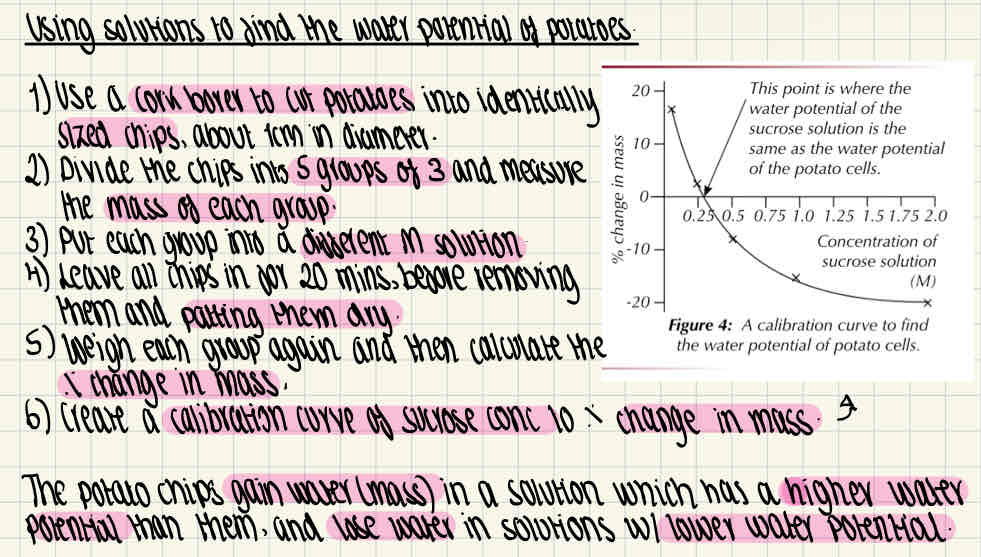 Using solutions to find the water potential of potatoes.
1) Use a cork borer to cut potatoes into identically
sized chips, about 1cm in diameter.
2) Divide the chips into 5 groups of 3 and measure
the mass of each group.
3) Put each group into a different M solution
4) Leave all chips in for 20 mins, before removing
them and patting them dry.
5) Weigh each group again and then calculate the
% change in mass.
6) Create a calibration curve of sucrose conc to % change in mass.
The potato chips gain water (mass) in a solution which has a higher water
potential than them, and lose water in solutions w/ lower water potential.
20
10
0
-10
-20
% change in mass
This point is where the
water potential of the
sucrose solution is the
same as the water potential
of the potato cells.
0.25 0.5 0.75 1.0 1.25 1.5 1.75 2.0
Concentration of
sucrose solution
(M)
Figure 4: A calibration curve to find
the water potential of potato cells.